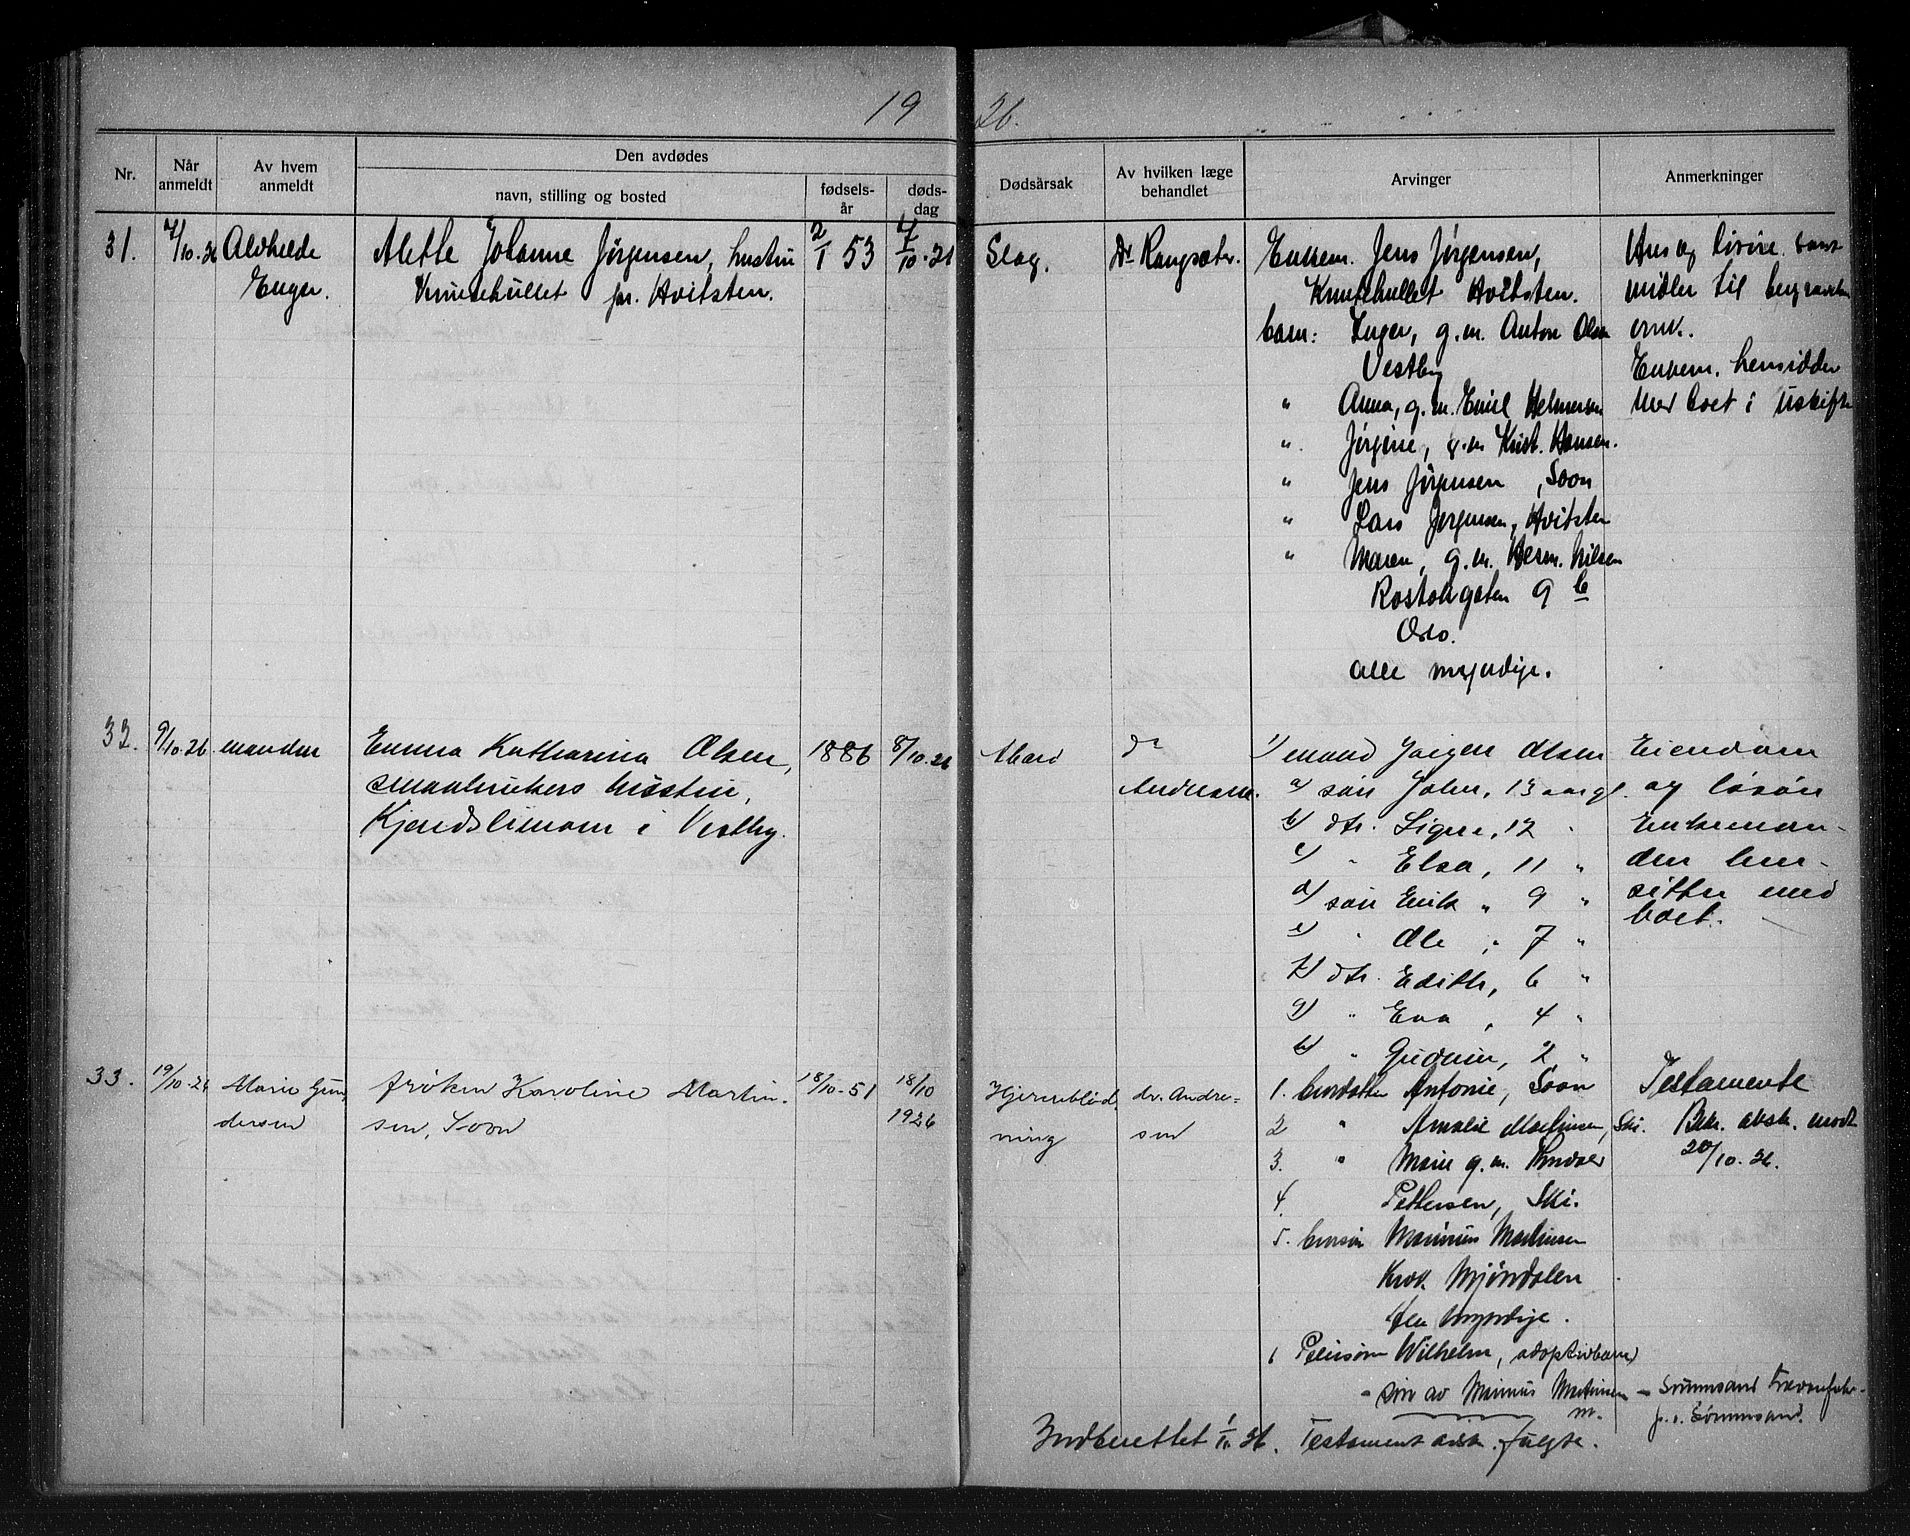 1926.
Nr.
Når anmeldt
Av hvem anmeldt
Den avdødes
navn, stilling og bosted
fødsels-år
døds-dag
Dødsårsak
Av hvilken læge behandlet
Arvinger
Anmerkninger
31. 4/10.26 Alvhelde
Enger.
Alette Johanne Jørgensen, hustru
Knutehullet pr. Hvitsten.
2/1 53
4/10.26
Slag.
Dr Rangsæter.
Enkem. Jens Jørgensen,
Knutehullet Hvitsten.
barn: Inger, g.m. Anton Olsen
Vestby
" Anna, g.m. Emil Helmersen
". Jørgine, g.m Krist. Hansen.
" Jens Jørgensen, Soon
" Lars Jørgensen, Hvitsten
" Maren, g.m. Herm. Nilsen
Rostokgaten 9 b
Oslo.
alle myndige.
Hus og løsøre samt
midler til begravelsen
Enkem. hensidder
med boet i uskifte
32. 9/10.26. manden
Emma Katharina Olsen,
smaabrukers hustru,
Kjendslimoen i Vestby.
1886
8/10.26
Abord
dr
Andresen.
1) mand Jørgen Olsen
a) søn John, 13 aar gl.
b) dtr. Signe, 12 "
c) " Elsa, 11 "
d) søn Erik " 9 "
e) " Ole " 7 "
f) dtr. Edith, 6 "
g) " Eva, 4 "
h) " Gudrun, 2 "
Eiendom
og løsøre
Enkeman-
den hen-
sitter med
boet.
33. 19/10.26 Marie Gun-
dersen
frøken Karoline Martin-
sen, Soon
18/10-51
18/10
1926
Hjerneblød-
ning
dr. Andre-
sen
1. brordatter Antonie, Soon
2 " Amalie Martinsen, Ski.
3. " Marie g.m.
4. Pettersen, Ski.
5. brorsøn Marinius Martinsen
Mjøndalen
myndige.
1 Pleiesøn Wilhelm, adoptivbarn
- søn av Marinius Martinsen
Testamente
Bekr. avskr. modt
20/10.26.
Indberettet 1/11 26. Testament avskr. fulgte.